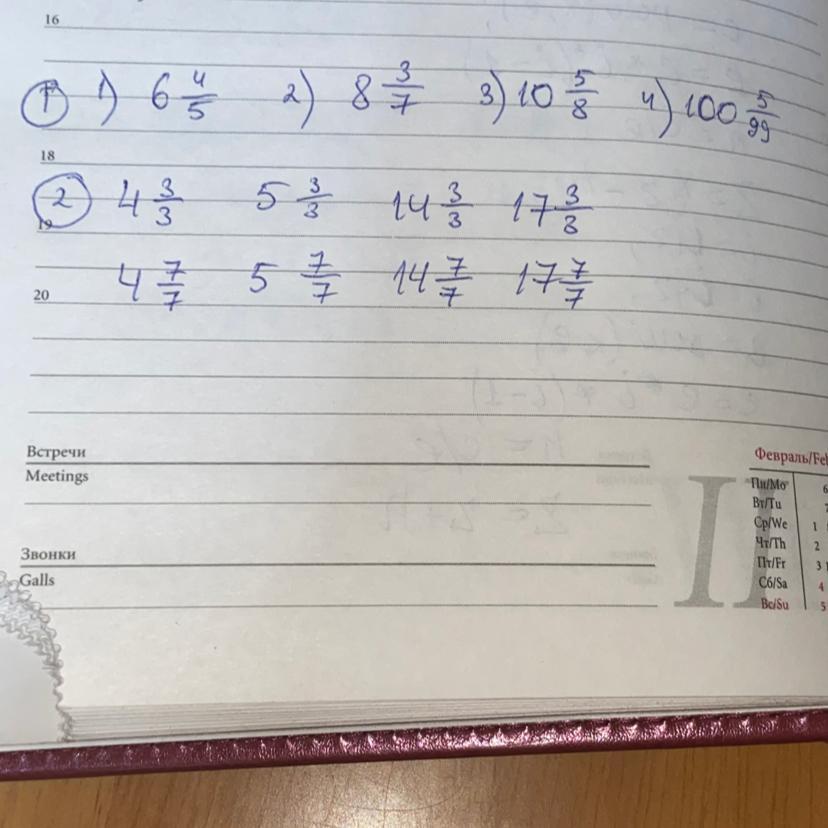 16
① 1) 6 4/5 2) 8 3/7 3) 10 5/8 4) 100 5/99
18
② 4 3/3 5 3/3 14 3/3 17 3/3
19
4 7/7 5 7/7 14 7/7 17 7/7
20
Встречи
Meetings
Звонки
Galls
Февраль/Feb
Пн/Mo 6
Вт/Tu 7
Ср/We 1
Чт/Th 2
Пт/Fr 3
Сб/Sa 4
Вс/Su 5
II